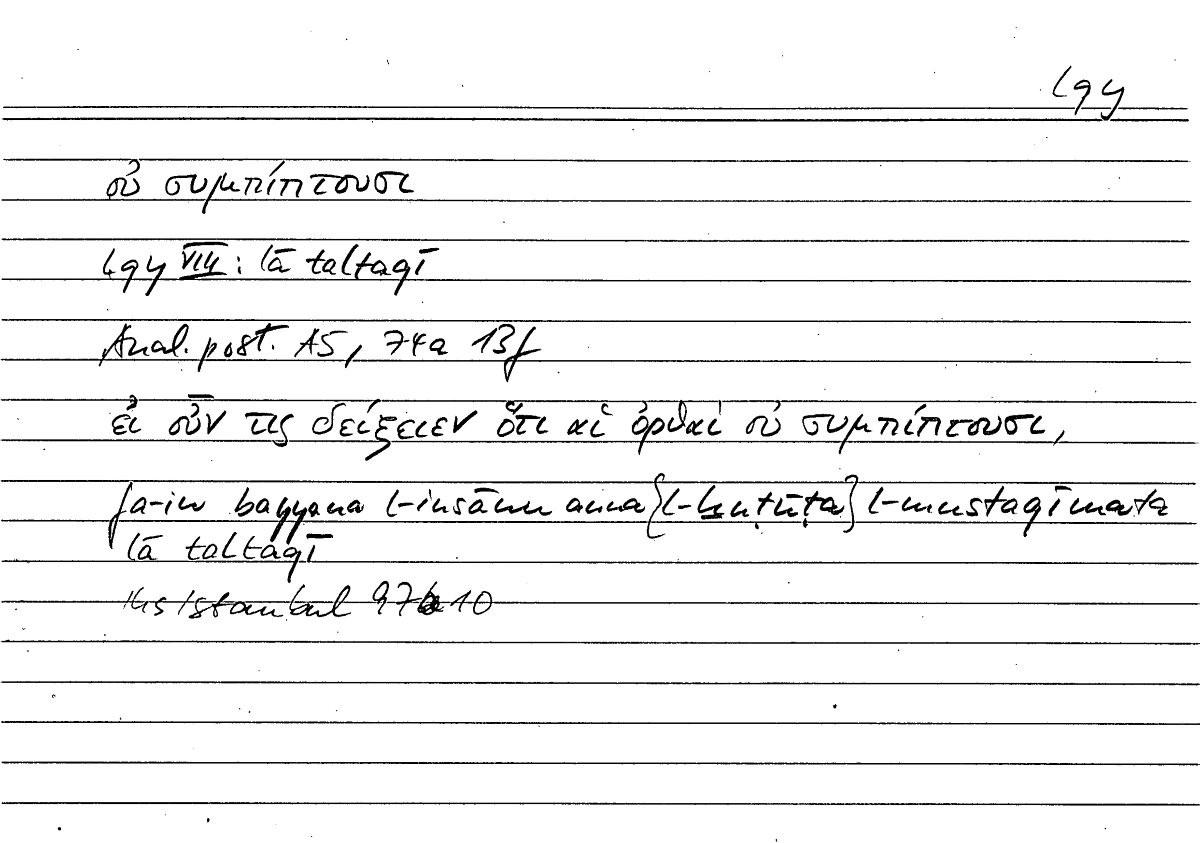 lqy
οὐ συμπίπτουσι
lqy VIII: lā taltaqī
Anal. post. A5, 74a 13f
εἰ οὖν τις δείξειεν ὅτι αἱ ὀρθαὶ οὐ συμπίπτουσι,
fa-in bayyana l-insānu anna {l-ḫuṭūṭa} l-mustaqīmata
lā taltaqī
Hs Istanbul 97 10